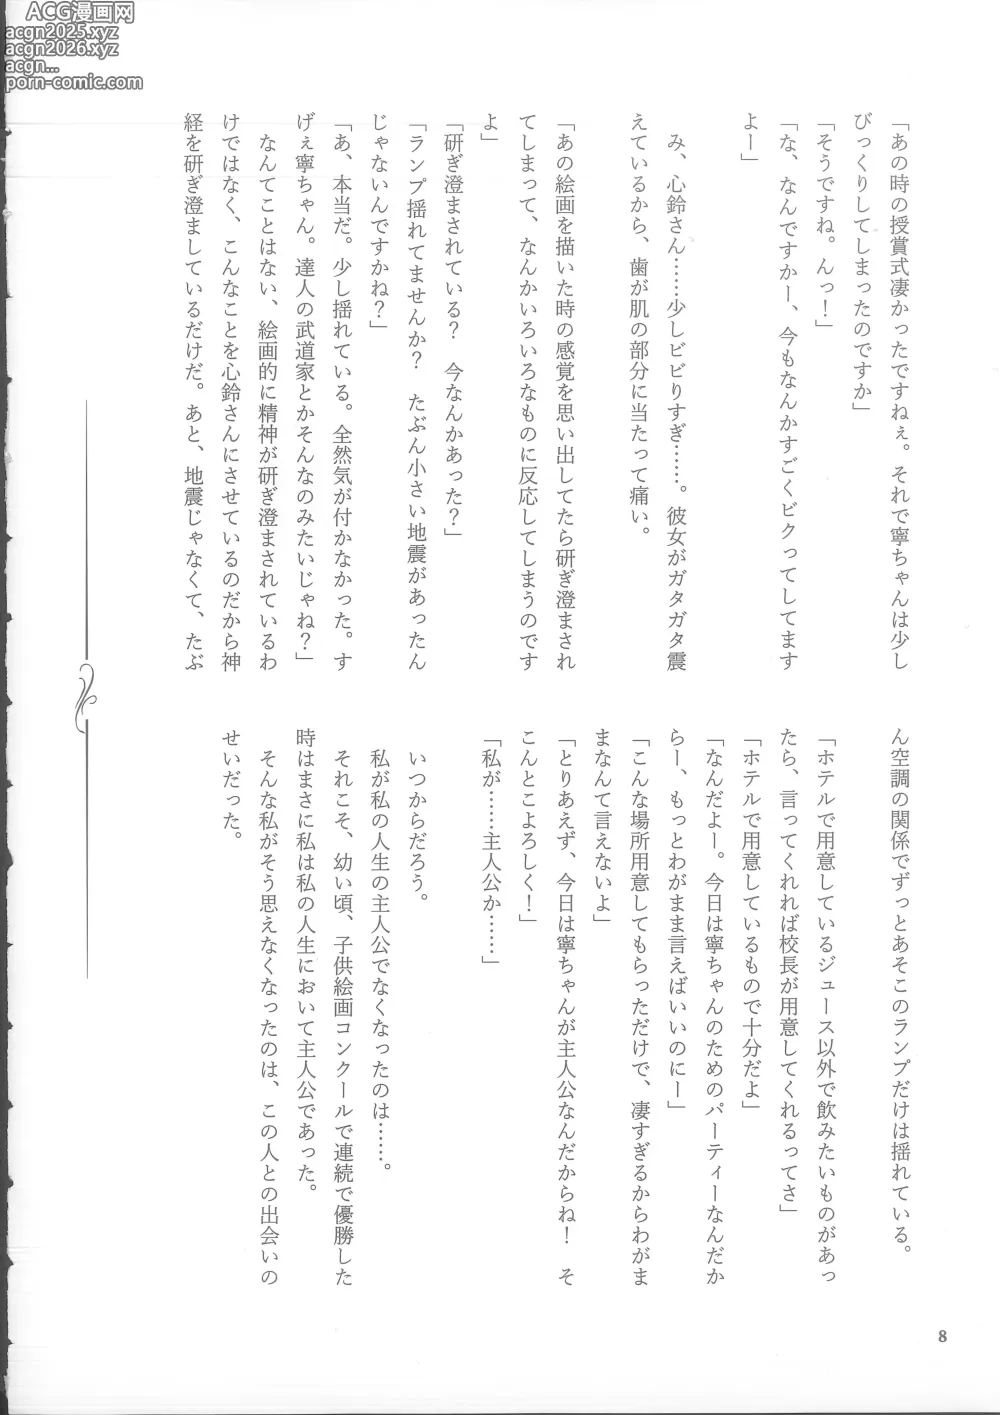 ACG漫画网
acgn2025.xyz
acgn2026.xyz
acgn...
porn-comic.com
「あの時の授賞式凄かったですねぇ。それで寧ちゃんは少し
びっくりしてしまったのですか」
「そうですね。んっ！」
「な、なんですかー、今もなんかすごくビクってしてます
よー」
み、心鈴さん……少しビビりすぎ……。彼女がガタガタ震
えているから、歯が肌の部分に当たって痛い。
「あの絵画を描いた時の感覚を思い出してたら研ぎ澄まされ
てしまって、なんかいろいろなものに反応してしまうのです
よ」
「研ぎ澄まされている？　今なんかあった？」
「ランプ揺れてませんか？　たぶん小さい地震があったん
じゃないんですかね？」
「あ、本当だ。少し揺れている。全然気が付かなかった。す
げぇ寧ちゃん。達人の武道家とかそんなのみたいじゃね？」
なんてことはない、絵画的に精神が研ぎ澄まされているわ
けではなく、こんなことを心鈴さんにさせているのだから神
経を研ぎ澄ましているだけだ。あと、地震じゃなくて、たぶ
ん空調の関係でずっとあそこのランプだけは揺れている。
「ホテルで用意しているジュース以外で飲みたいものがあっ
たら、言ってくれれば校長が用意してくれるってさ」
「ホテルで用意しているもので十分だよ」
「なんだよー。今日は寧ちゃんのためのパーティーなんだか
らー、もっとわがまま言えばいいのにー」
「こんな場所用意してもらっただけで、凄すぎるからわがま
まなんて言えないよ」
「とりあえず、今日は寧ちゃんが主人公なんだからね！　そ
こんとこよろしく！」
「私が……主人公か……」
いつからだろう。
私が私の人生の主人公でなくなったのは……。
それこそ、幼い頃、子供絵画コンクールで連続で優勝した
時はまさに私は私の人生において主人公であった。
そんな私がそう思えなくなったのは、この人との出会いの
せいだった。
8